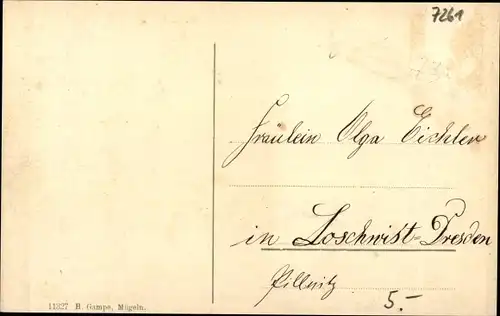 7261
Fräulein Olga Eichler
in Loschwitz-Dresden
Pillnitz
5.-
11327 R. Gampe, Mügeln.